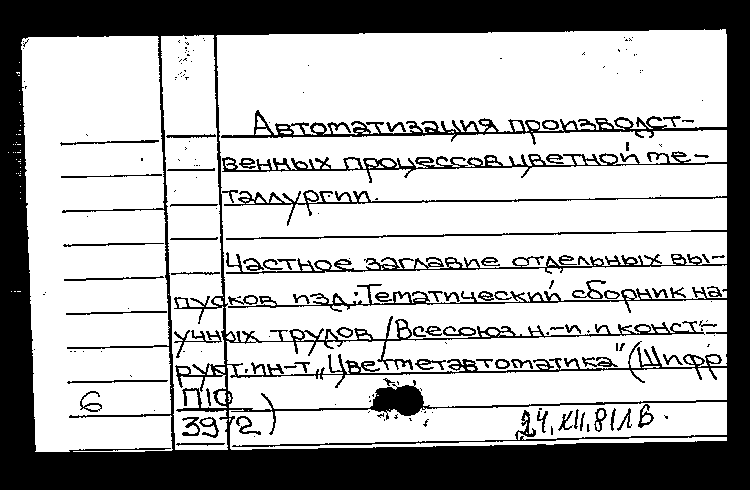 Автоматизация производст-
венных процессов цветной ме-
таллургии.
Частное заглавие отдельных вы-
пусков изд.: Тематический сборник на-
учных трудов / Всесоюз. н.-и. и конст-
рукт. ин-т „Цветметавтоматика" (Шифр
6 П10
3972)
24.XII.81 ЛВ.